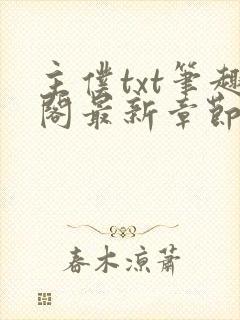 主僕txt筆趣
閣最新章節
春木涼蕭